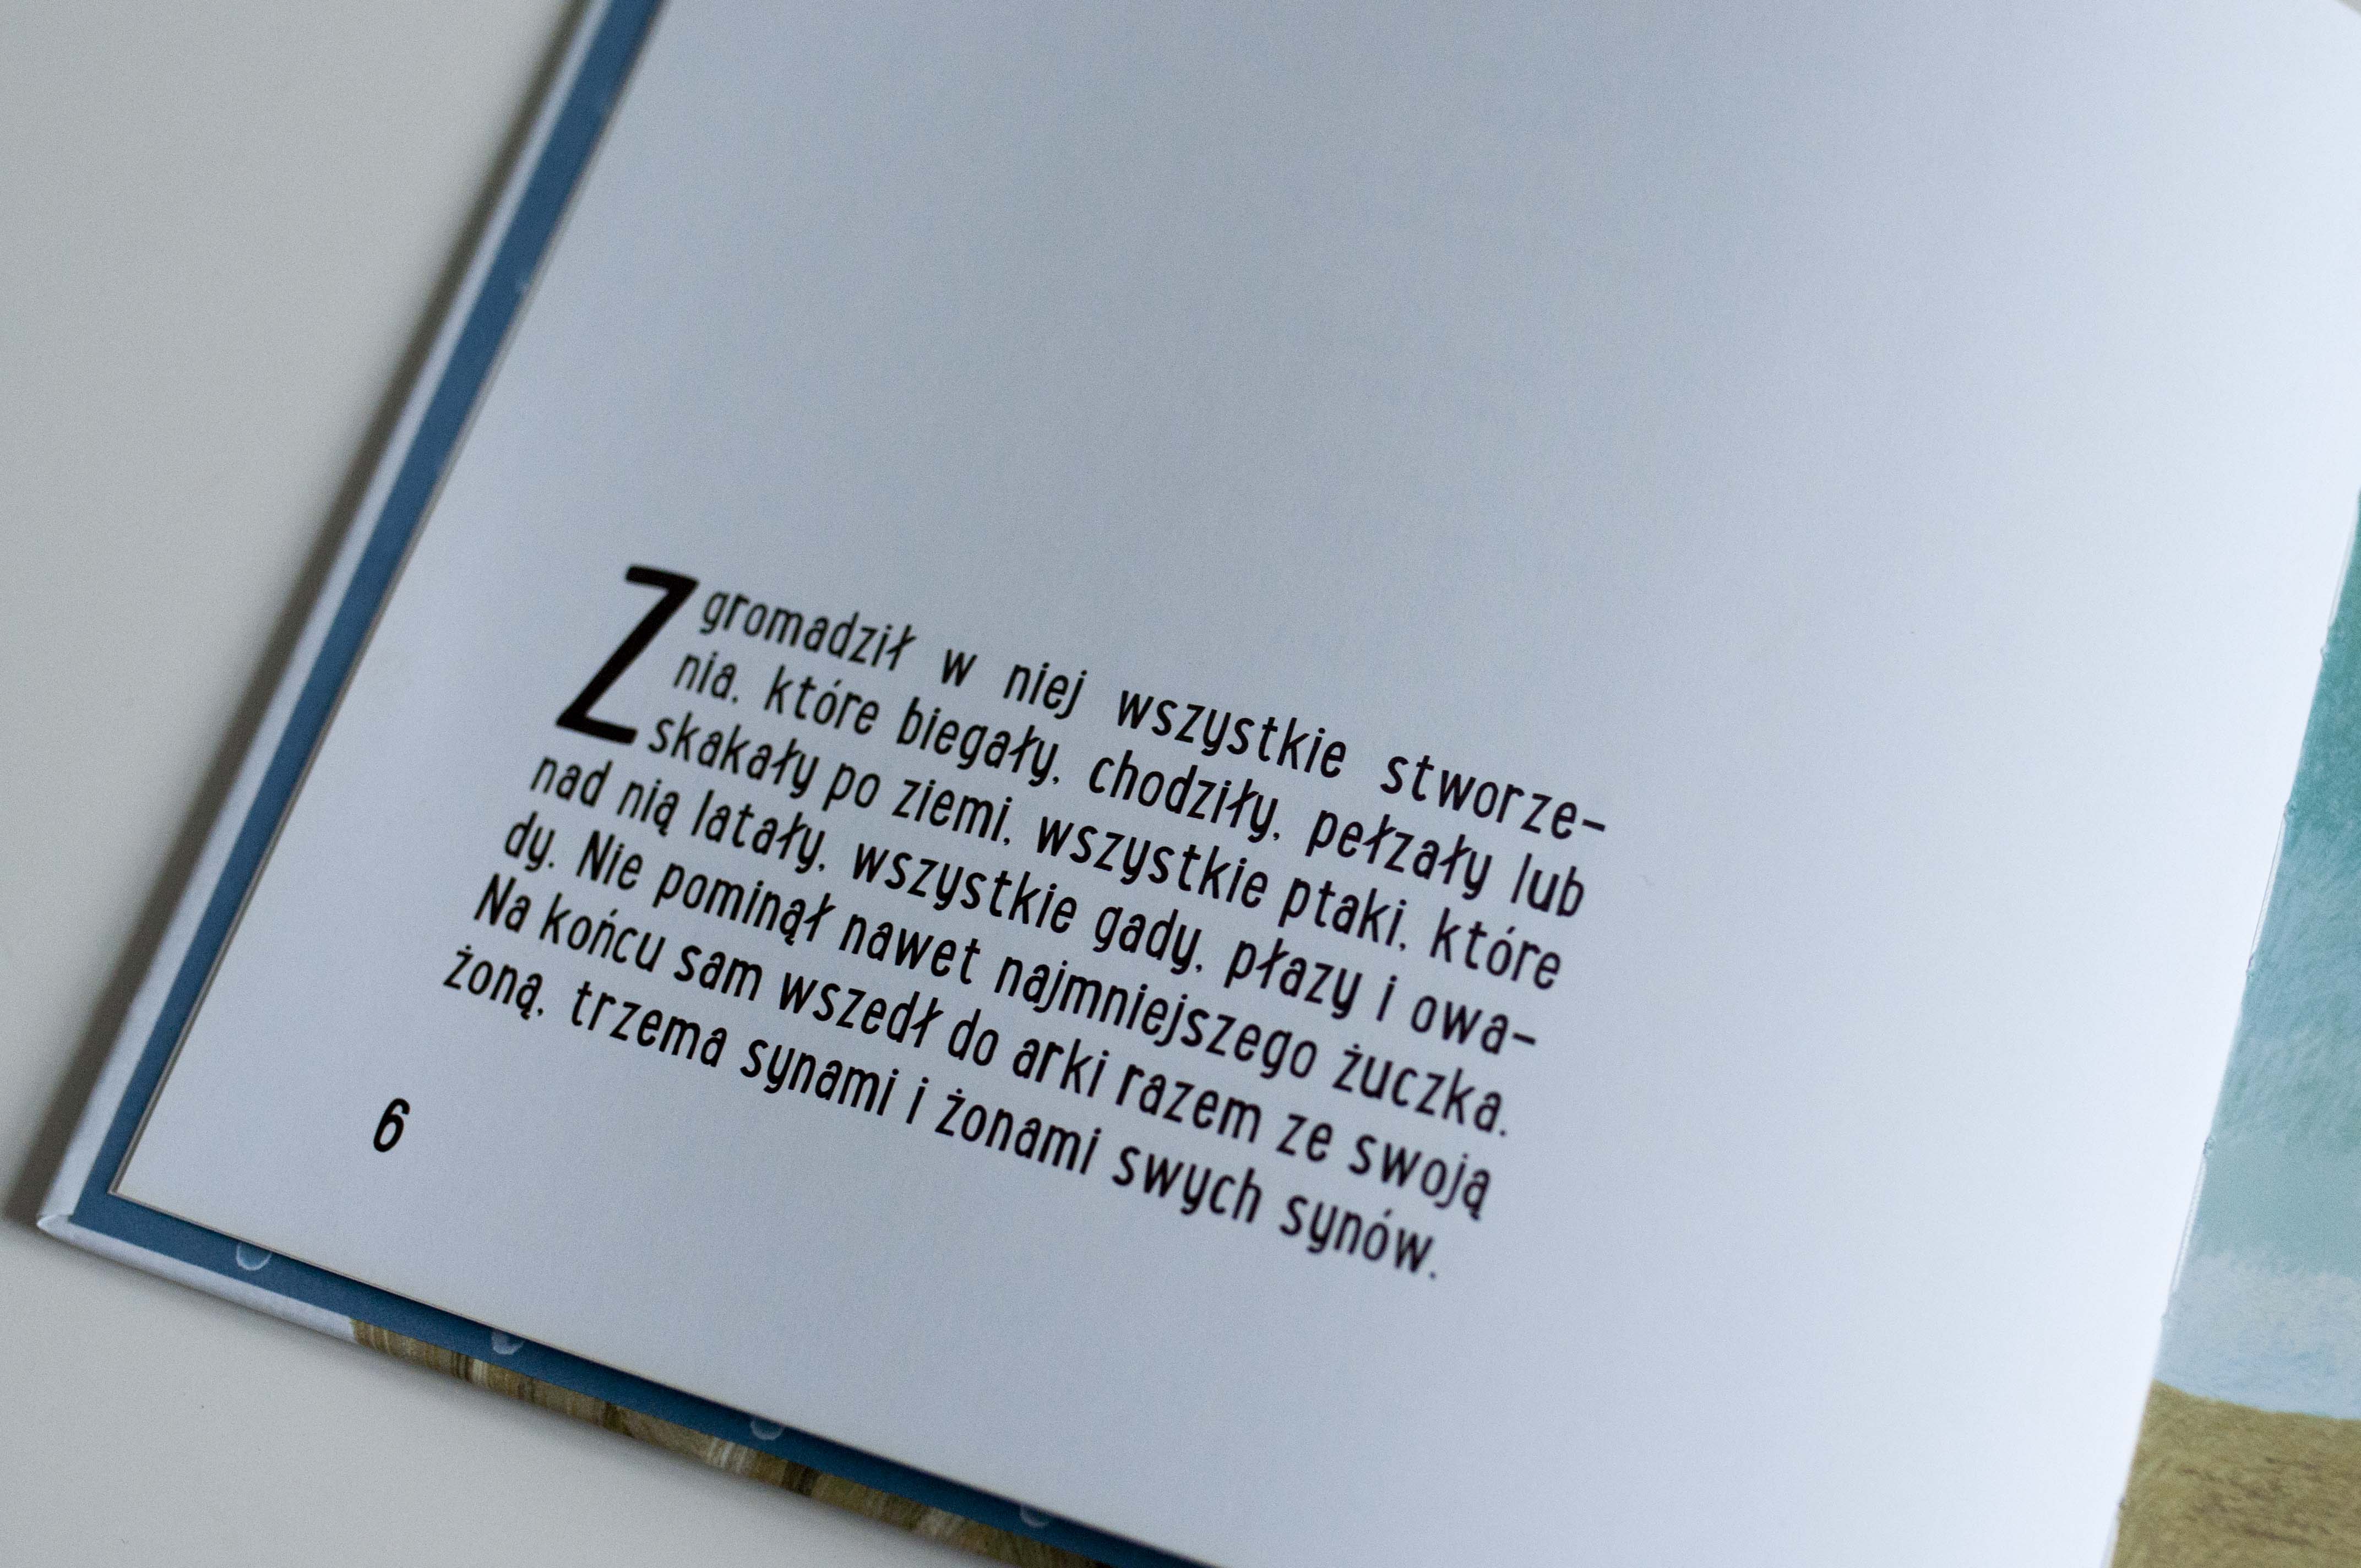 Zgromadził w niej wszystkie stworze-
nia, które biegały, chodziły, pełzały lub
skakały po ziemi, wszystkie ptaki, które
nad nią latały, wszystkie gady, płazy i owa-
dy. Nie pominął nawet najmniejszego żuczka.
Na końcu sam wszedł do arki razem ze swoją
żoną, trzema synami i żonami swych synów.
6